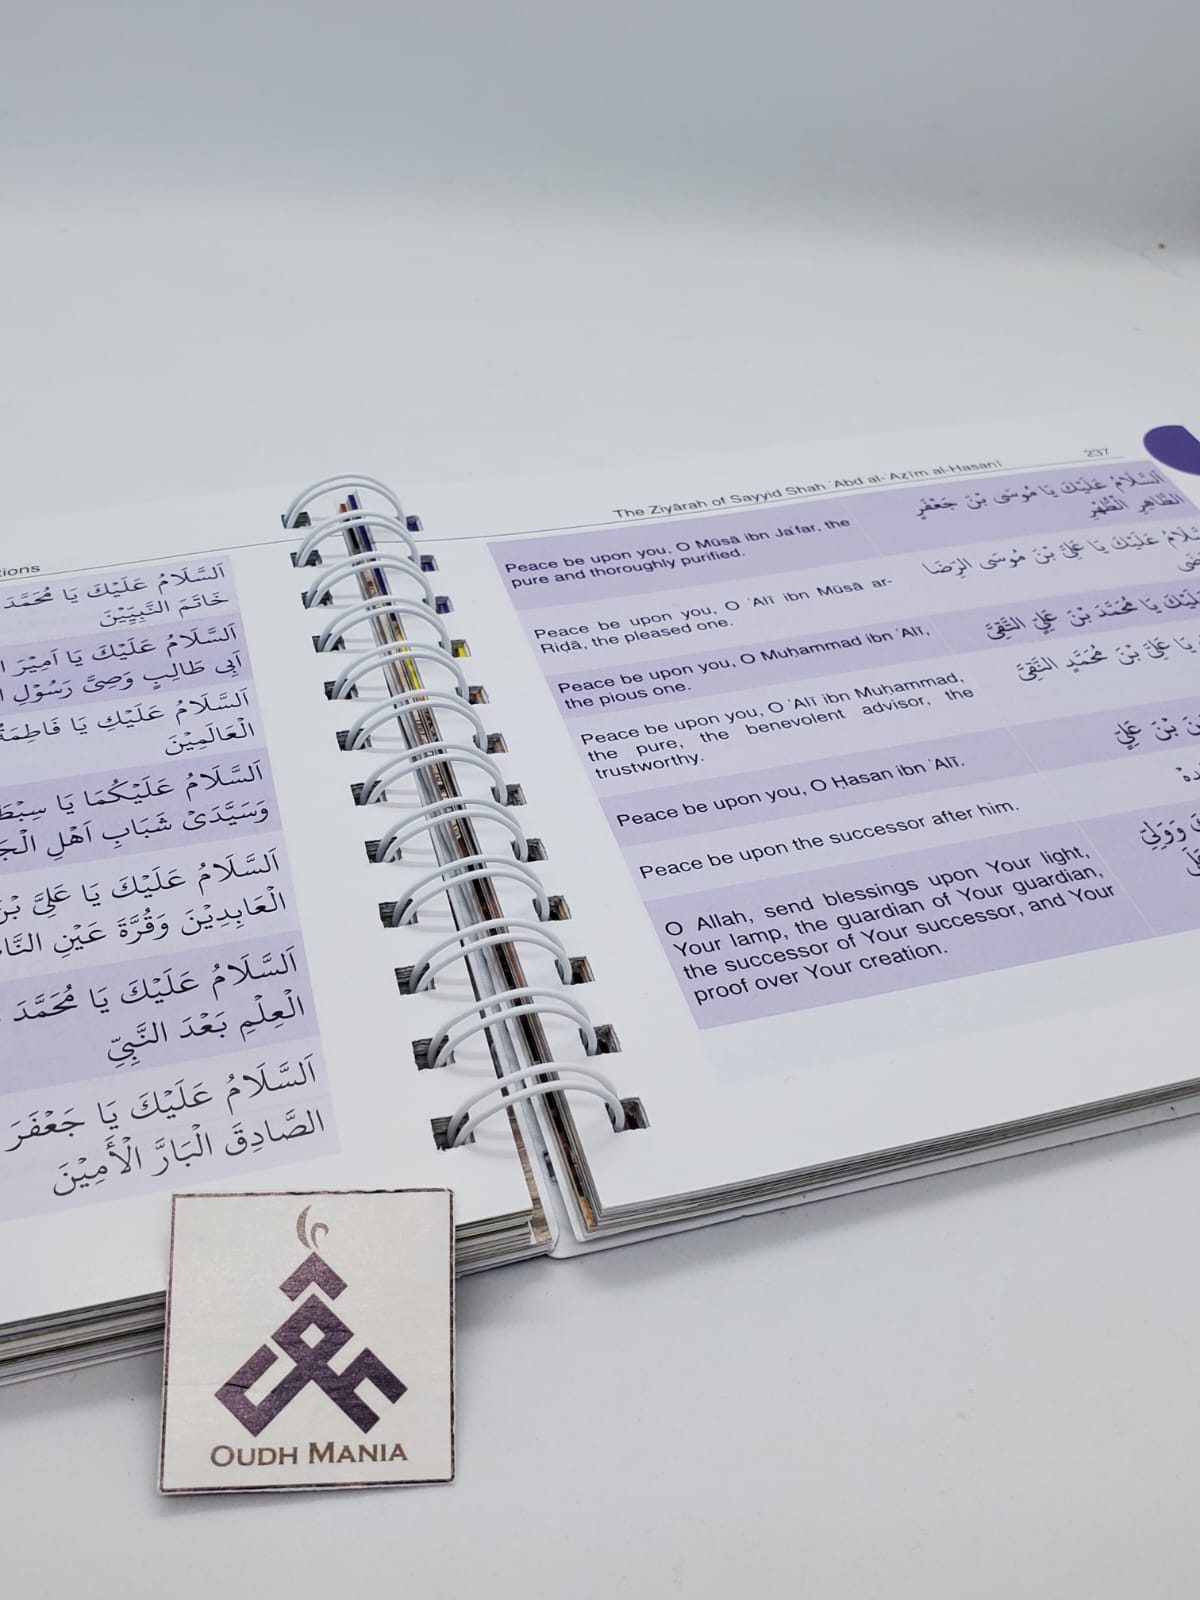 tions
اَلسَّلَامُ عَلَيْكَ يَا مُحَمَّدَ
خَاتَمَ النَّبِيِّيْنَ
اَلسَّلَامُ عَلَيْكَ يَا اَمِيْرَ
اَبِى طَالِبٍ وَصِىَّ رَسُوْلِ
اَلسَّلَامُ عَلَيْكِ يَا فَاطِمَةُ
الْعَالَمِيْنَ
اَلسَّلَامُ عَلَيْكُمَا يَا سِبْطَ
وَسَيِّدَىْ شَبَابِ اَهْلِ الْجَ
اَلسَّلَامُ عَلَيْكَ يَا عَلِىَّ بْنَ
الْعَابِدِيْنَ وَقُرَّةَ عَيْنِ النَّا
اَلسَّلَامُ عَلَيْكَ يَا مُحَمَّدَ
الْعِلْمِ بَعْدَ النَّبِيِّ
اَلسَّلَامُ عَلَيْكَ يَا جَعْفَرَ
الصَّادِقَ الْبَارَّ الْأَمِيْنَ
The Ziyārah of Sayyid Shah ʿAbd al-ʿAẓīm al-Ḥasanī
237
Peace be upon you, O Mūsā ibn Jaʿfar, the
pure and thoroughly purified.
اَلسَّلَامُ عَلَيْكَ يَا مُوسَى بْنَ جَعْفَرٍ
الطَّاهِرِ الطُّهْرِ
Peace be upon you, O ʿAlī ibn Mūsā ar-
Riḍā, the pleased one.
لَامُ عَلَيْكَ يَا عَلِىَّ بْنَ مُوسَى الرِّضَا
Peace be upon you, O Muḥammad ibn ʿAlī,
the pious one.
عَلَيْكَ يَا مُحَمَّدَ بْنَ عَلِيٍّ التَّقِىَّ
Peace be upon you, O ʿAlī ibn Muḥammad,
the pure, the benevolent advisor, the
trustworthy.
يَا عَلِىَّ بْنَ مُحَمَّدٍ النَّقِىَّ
Peace be upon you, O Ḥasan ibn ʿAlī.
بْنَ عَلِيٍّ
Peace be upon the successor after him.
O Allah, send blessings upon Your light,
Your lamp, the guardian of Your guardian,
the successor of Your successor, and Your
proof over Your creation.
وَوَلِيِّ
OUDH MANIA